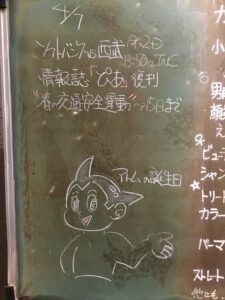 4/7
ソフトバンクvs西武
情報誌「ぴあ」復刊
春の交通安全運動 〜15日まで
アトムの誕生日
小
男
顔
え
ビュー
シャン
★トリート
カラー
パーマ
ストレート
他にも、